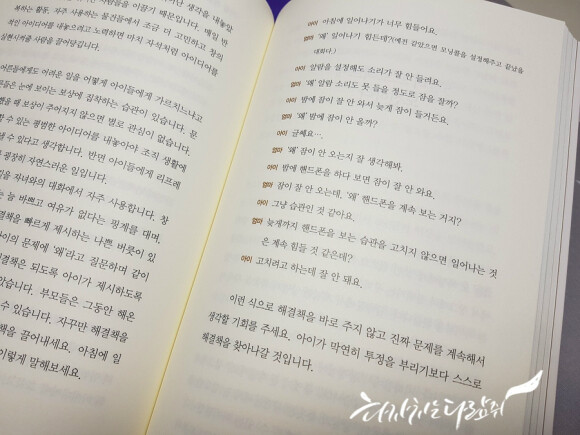 난 생각을 내놓았
사람들을 이끌기 때문입니다. 매일 반
복하는 활동, 자주 사용하는 물건들에서 조금 더 고민하고 창의
적인 아이디어를 내놓으려고 노력하면 마치 자석처럼 아이디어를
실현시켜줄 사람을 끌어당깁니다.
어른들에게도 어려운 일을 어떻게 아이들에게 가르치느냐고
들은 눈에 보이는 보상에 집착하는 습관이 있습니다. 문
했을 때 보상이 주어지지 않으면 별로 관심이 없습니다.
할 수 있는 평범한 아이디어를 내놓아야 조직 생활에
수 있다고 생각합니다. 반면 아이들에게 리프레
굉장히 자연스러운 일입니다.
을 자녀와의 대화에서 자주 사용합니다. 창
는 늘 바쁘고 여유가 없다는 핑계를 대며,
결책을 빠르게 제시하는 나쁜 버릇이 있
아이의 문제에 '왜'라고 질문하며 같이
해결책은 되도록 아이가 제시하도록
았습니다. 부모들은 그동안 해온
수 있습니다. 자꾸만 해결책
책을 끌어내세요. 아침에 일
이렇게 말해보세요.
아이 아침에 일어나기가 너무 힘들어요.
엄마 '왜' 일어나기 힘든데?(예전 같았으면 모닝콜을 설정해주고 끝났을
대화다.)
아이 알람을 설정해도 소리가 잘 안 들려요.
엄마 '왜' 알람 소리도 못 들을 정도로 잠을 잘까?
아이 밤에 잠이 잘 안 와서 늦게 잠이 들거든요.
엄마 '왜' 밤에 잠이 안 올까?
아이 글쎄요….
엄마 '왜' 잠이 안 오는지 잘 생각해봐.
아이 밤에 핸드폰을 하다 보면 잠이 잘 안 와요.
엄마 잠이 잘 안 오는데, '왜' 핸드폰을 계속 보는 거지?
아이 그냥 습관인 것 같아요.
엄마 늦게까지 핸드폰을 보는 습관을 고치지 않으면 일어나는 것
은 계속 힘들 것 같은데?
아이 고치려고 하는데 잘 안 돼요.
이런 식으로 해결책을 바로 주지 않고 진짜 문제를 계속해서
생각할 기회를 주세요. 아이가 막연히 투정을 부리기보다 스스로
해결책을 찾아나갈 것입니다.